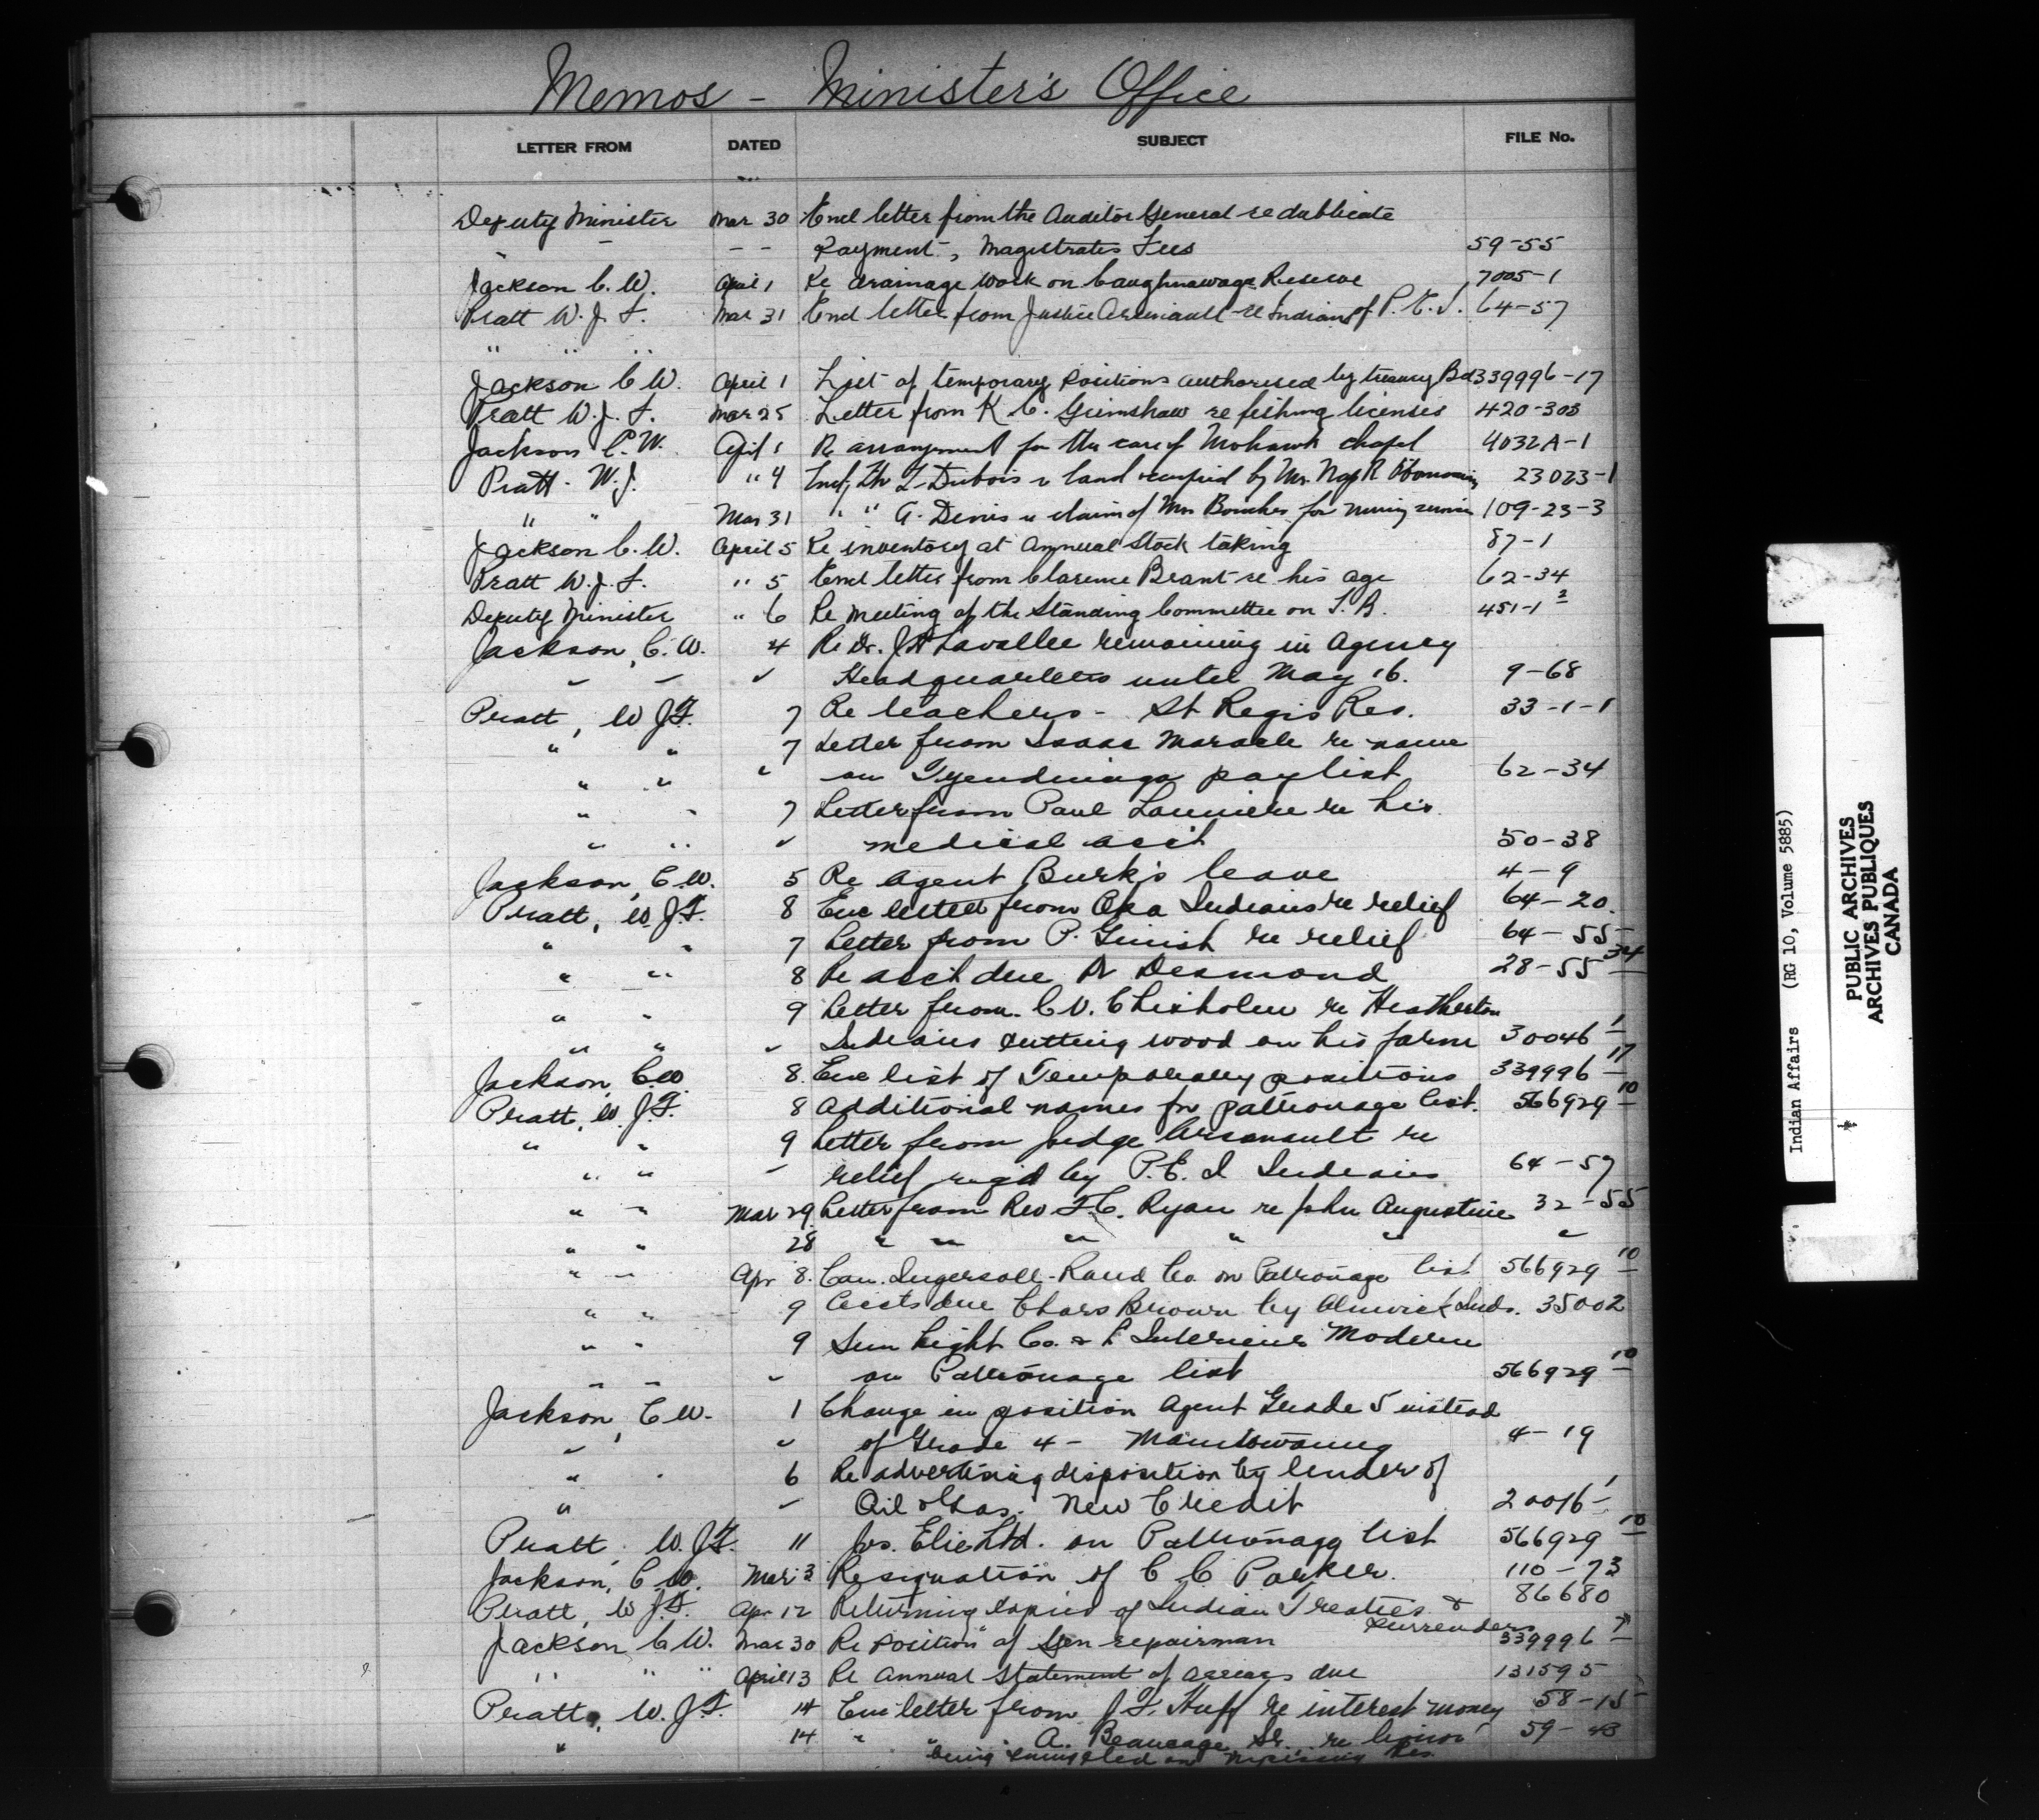 Memos - Minister's Office
LETTER FROM DATED SUBJECT FILE No.
Deputy Minister Mar 30 Encl letter from the Auditor General re dublicate
" " - - Payment, Magistrates Fees 59-55
Jackson C. W. April 1 Re drainage work on Caughnawaga Reserve 7005-1
Pratt W. J. F. Mar 31 Encl letter from Justice Arsenault re Indians of P. E. I. 64-57
" " "
Jackson C W. April 1 List of temporary positions authorised by treasury Bd 339996-17
Pratt W. J. F. Mar 25 Letter from K. C. Grimshaw re fishing licenses 420-303
Jackson C. W. April 1 Re arrangement for the care of Mohawk chapel 4032A-1
Pratt - W. J. " 4 L. Dubois re land occupied by Mr. Nap R 23023-1
" " Mar 31 " " A. Denis re claim of Mrs for 109-23-3
Jackson C. W. April 5 Re inventory at Annual Stock taking 87-1
Pratt W. J. F. " 5 Encl letter from Clarence Brant re his age 62-34
Deputy Minister " 6 Re meeting of the Standing Committee on I. A. 451-1 2
Jackson, C. W. 4 Re Dr. Lavallee remaining in Agency
" " " Headquarters until May 16. 9-68
Pratt, W J F. 7 Re teachers - St Regis Res. 33-1-1
" " 7 Letter from Isaac Maracle re name
" " " on Tyendinaga paylist 62-34
" " 7 Letter from Paul re his
" " " medical acct 50-38
Jackson, C. W. 5 Re Agent Burk's leave 4-9
Pratt, W J F. 8 Enc letter from Oka Indians re relief 64-20.
" " 7 Letter from P. Ginish re relief 64-55
" " 8 Re acct due Dr Desmond 28-55 34
" " 9 Letter from C. V. Chisholm re Heatherton
" " " Indians cutting wood on his farm 30046 1
Jackson, C. W. 8. Enc list of Temporary positions 339996 17
Pratt, W. J. F. 8 Additional names for patronage list. 566929 10
" " 9 Letter from Judge Arsenault re
" " " relief req'd by P. E. I Indians 64-57
" " Mar 29. Letter from Rev F. C. Ryan re John Augustine 32-55
" " 28 " " " " " "
" " Apr 8. Can. Ingersoll-Rand Co. on Patronage list 566929 10
" " 9 Accts due Chars Brown by Alnwick Inds. 35002
" " 9 Sun Light Co. & L'Interieur Moderne
" " " on Patronage list 566929 10
Jackson, C W. 1 Change in position Agent Grade 5 instead
" " of Grade 4 - Manitowaning 4-19
" " 6 Re advertising disposition by tender of
" " Oil & Gas. New Credit 20016-1
Pratt, W. J F. 11 Jos. Elie Ltd. on Patronage list 566929 10
Jackson, C W. Mar 3 Resignation of C C Parker. 110-73
Pratt, W J. F. Apr 12 Returning copies of Indian Treaties & 86680
Surrenders
Jackson C. W. Mar 30 Re position of Gen repairman 339996 7
" " " April 13 Re Annual statement of arrears due 131595
Pratt, W. J. F. 14 Enc letter from J. F. Huff re interest money 58-15
" 14 " " A. Beaucage Sr. re liquor 59-43
being smuggled on Nipissing Res.
Indian Affairs (RG 10, Volume 5885)
PUBLIC ARCHIVES
ARCHIVES PUBLIQUES
CANADA